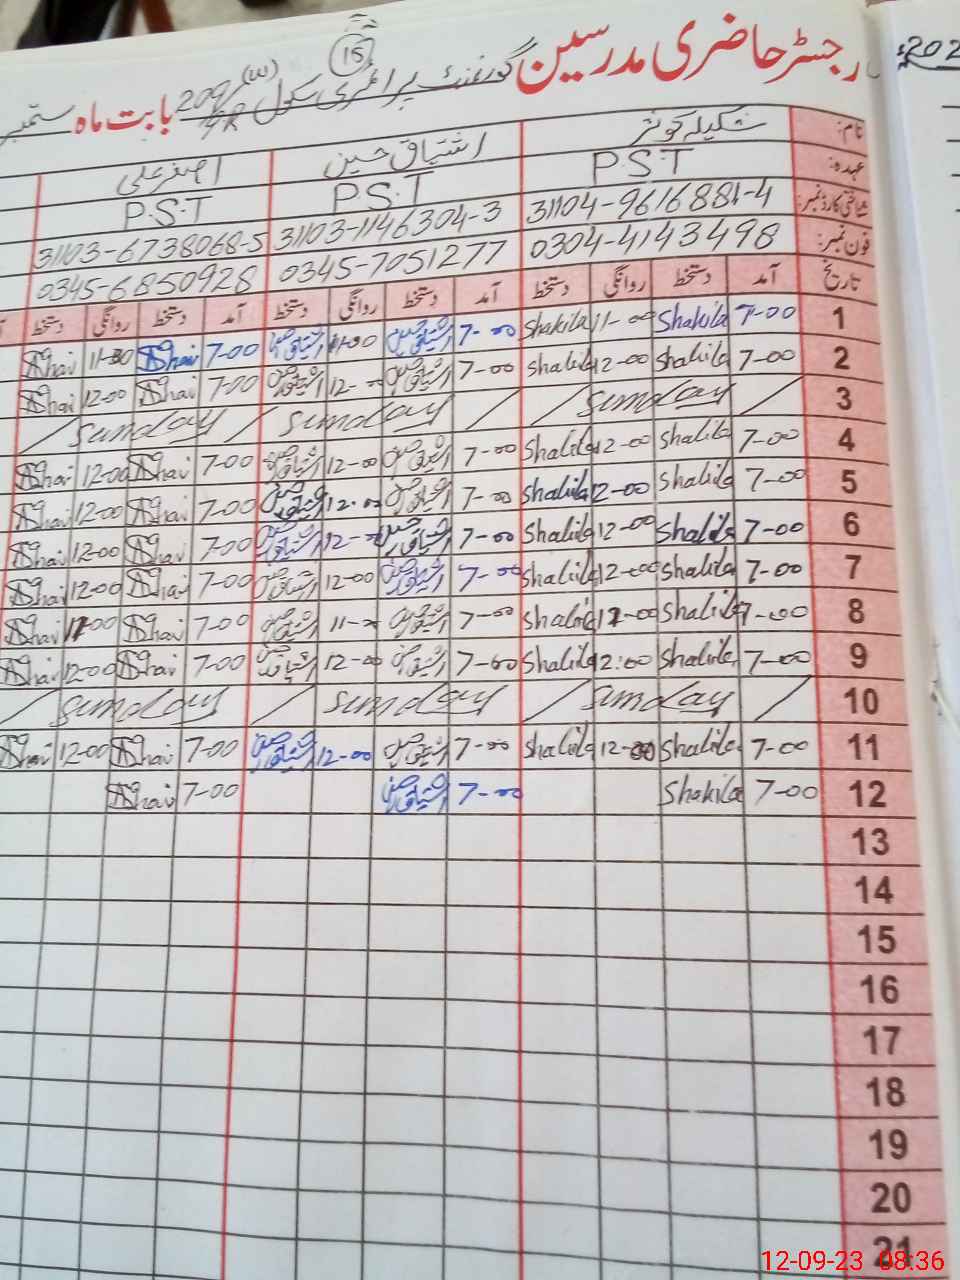 رجسٹر حاضری مدرسین گورنمنٹ پرائمری سکول 209/ (W) بابت ماہ ستمبر 202
15
نام: شکیلہ کوثر اشتیاق حسین اصغر علی
عہدہ: P.S.T P.S.T P.S.T
شناختی کارڈ نمبر: 31104-9616881-4 31103-1146304-3 31103-6738068-5
فون نمبر: 0304-4143498 0345-7051277 0345-6850928
تاریخ آمد دستخط روانگی دستخط آمد دستخط روانگی دستخط آمد دستخط روانگی دستخط
1 7-00 Shakila 11-00 Shakila 7-00 اشتیاق حسین 11-30 اشتیاق حسین 7-00 11-30
2 7-00 Shakila 12-00 Shakila 7-00 اشتیاق حسین 12-00 اشتیاق حسین 7-00 12-00
3 / Sunday / Sunday / Sunday /
4 7-00 Shakila 12-00 Shakila 7-00 اشتیاق حسین 12-00 اشتیاق حسین 7-00 12-00
5 7-00 Shakila 12-00 Shakila 7-00 اشتیاق حسین 12-00 اشتیاق حسین 7-00 12-00
6 7-00 Shakila 12-00 Shakila 7-00 اشتیاق حسین 12-00 اشتیاق حسین 7-00 12-00
7 7-00 Shakila 12-00 Shakila 7-00 اشتیاق حسین 12-00 اشتیاق حسین 7-00 12-00
8 7-00 Shakila Shakila 7-00 اشتیاق حسین اشتیاق حسین 7-00
9 7-00 Shakila 12:00 Shakila 7-00 اشتیاق حسین 12-00 اشتیاق حسین 7-00 12-00
10 / Sunday / Sunday / Sunday /
11 7-00 Shakila 12-00 Shakila 7-00 اشتیاق حسین 12-00 اشتیاق حسین 7-00 12-00
12 7-00 Shakila 7-00 اشتیاق حسین 7-00
13
14
15
16
17
18
19
20
21
12-09-23 08:36